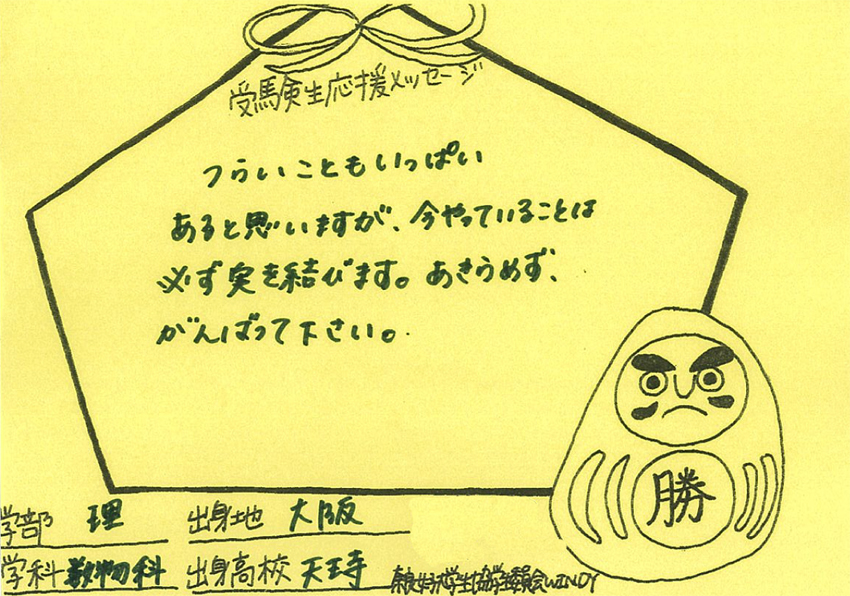 受験生応援メッセージ
つらいこともいっぱい
あると思いますが、今やっていることは
必ず実を結びます。あきらめず、
がんばって下さい。
勝
学部 理 出身地 大阪
学科 数物科 出身高校 天王寺 奈良女子大学生協学生委員会WINDY